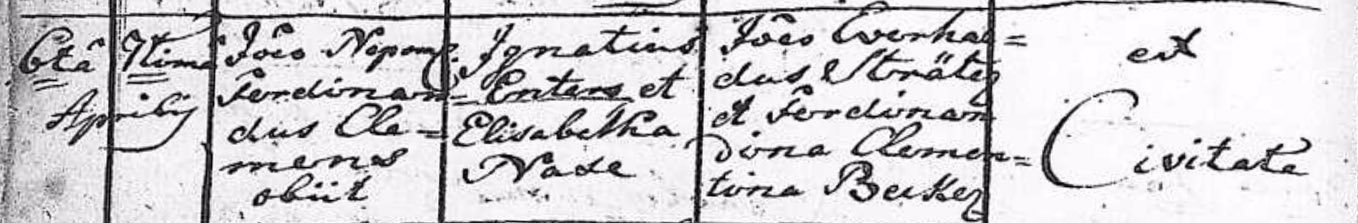 6tâ 7timâ
Aprilis
Jôes Nepom:
Ferdinan=
dus Cle=
mens
obiit
Ignatius
Enters et
Elisabetha
Nase
Jôes Everhar=
dus Sträter
et Ferdinan
dina Clemen=
tina Becker
ex
Civitate